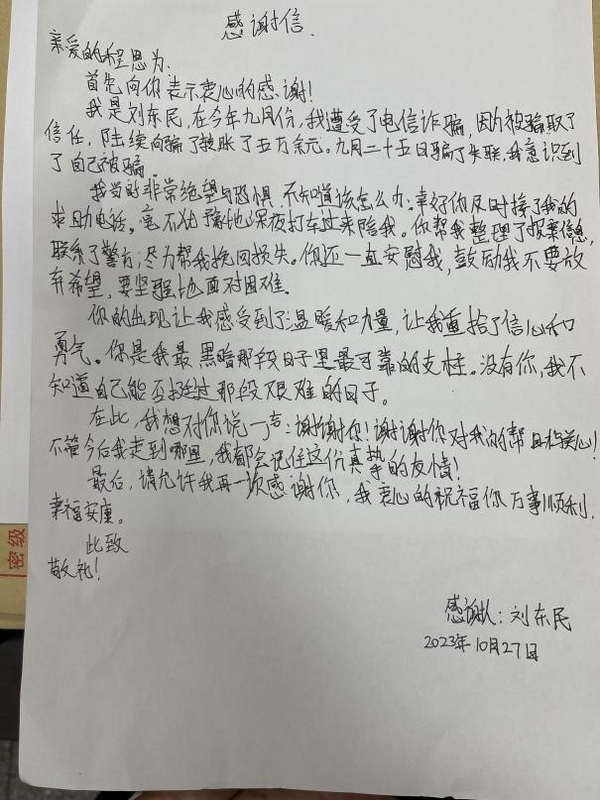 感谢信.
亲爱的程思为、
首先向你表示衷心的感谢!
我是刘东民,在今年九月份,我遭受了电信诈骗,因为被骗取了
信任,陆续向骗子转账了五万余元。九月二十五日骗子失联,我意识到
了自己被骗。
我当时非常绝望与恐惧,不知道该怎么办.幸好你及时接了我的
求助电话。毫不犹豫地深夜打车过来陪我。你帮我整理了报案信息,
联系了警方,尽力帮我挽回损失。你还一直安慰我,鼓励我不要放
弃希望,要坚强地面对困难.
你的出现让我感受到了温暖和力量,让我重拾了信心和
勇气。你是我最黑暗那段日子里最可靠的支柱。没有你,我不
知道自己能否挺过那段艰难的日子。
在此,我想对你说一声:谢谢你!谢谢你对我的帮助与关心!
不管今后我走到哪里,我都会记住这份真挚的友情!
最后,请允许我再一次感谢你,我衷心的祝福你万事顺利,
幸福安康。
此致
敬礼!
感谢人:刘东民
2023年10月27日
密级